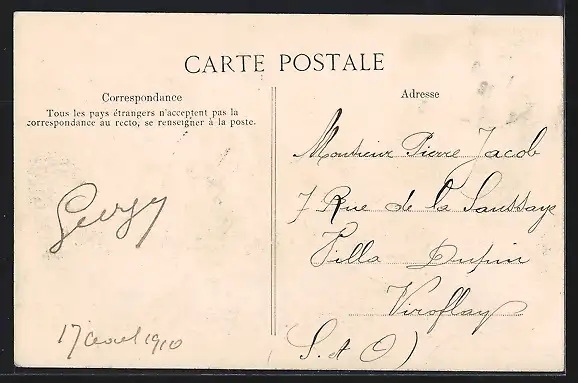 CARTE POSTALE
Correspondance
Tous les pays étrangers n'acceptent pas la
correspondance au recto, se renseigner à la poste.
Georgey
17 Avril 1910
Adresse
Monsieur Pierre Jacob
7 Rue de la Saussaye
Villa Dupin
Viroflay
(S. et O)